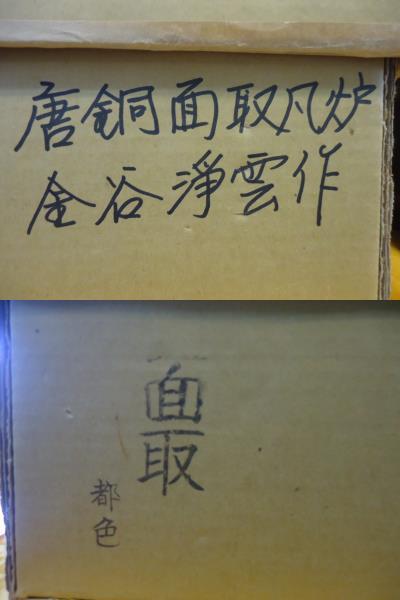 唐銅面取凡炉
金谷淨雲作
面取
都色